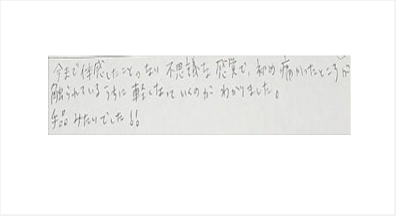 今まで体感したことのない不思議な感覚で、初め痛かったところが
触られているうちに軽くなっていくのがわかりました。
手品みたいでした!!